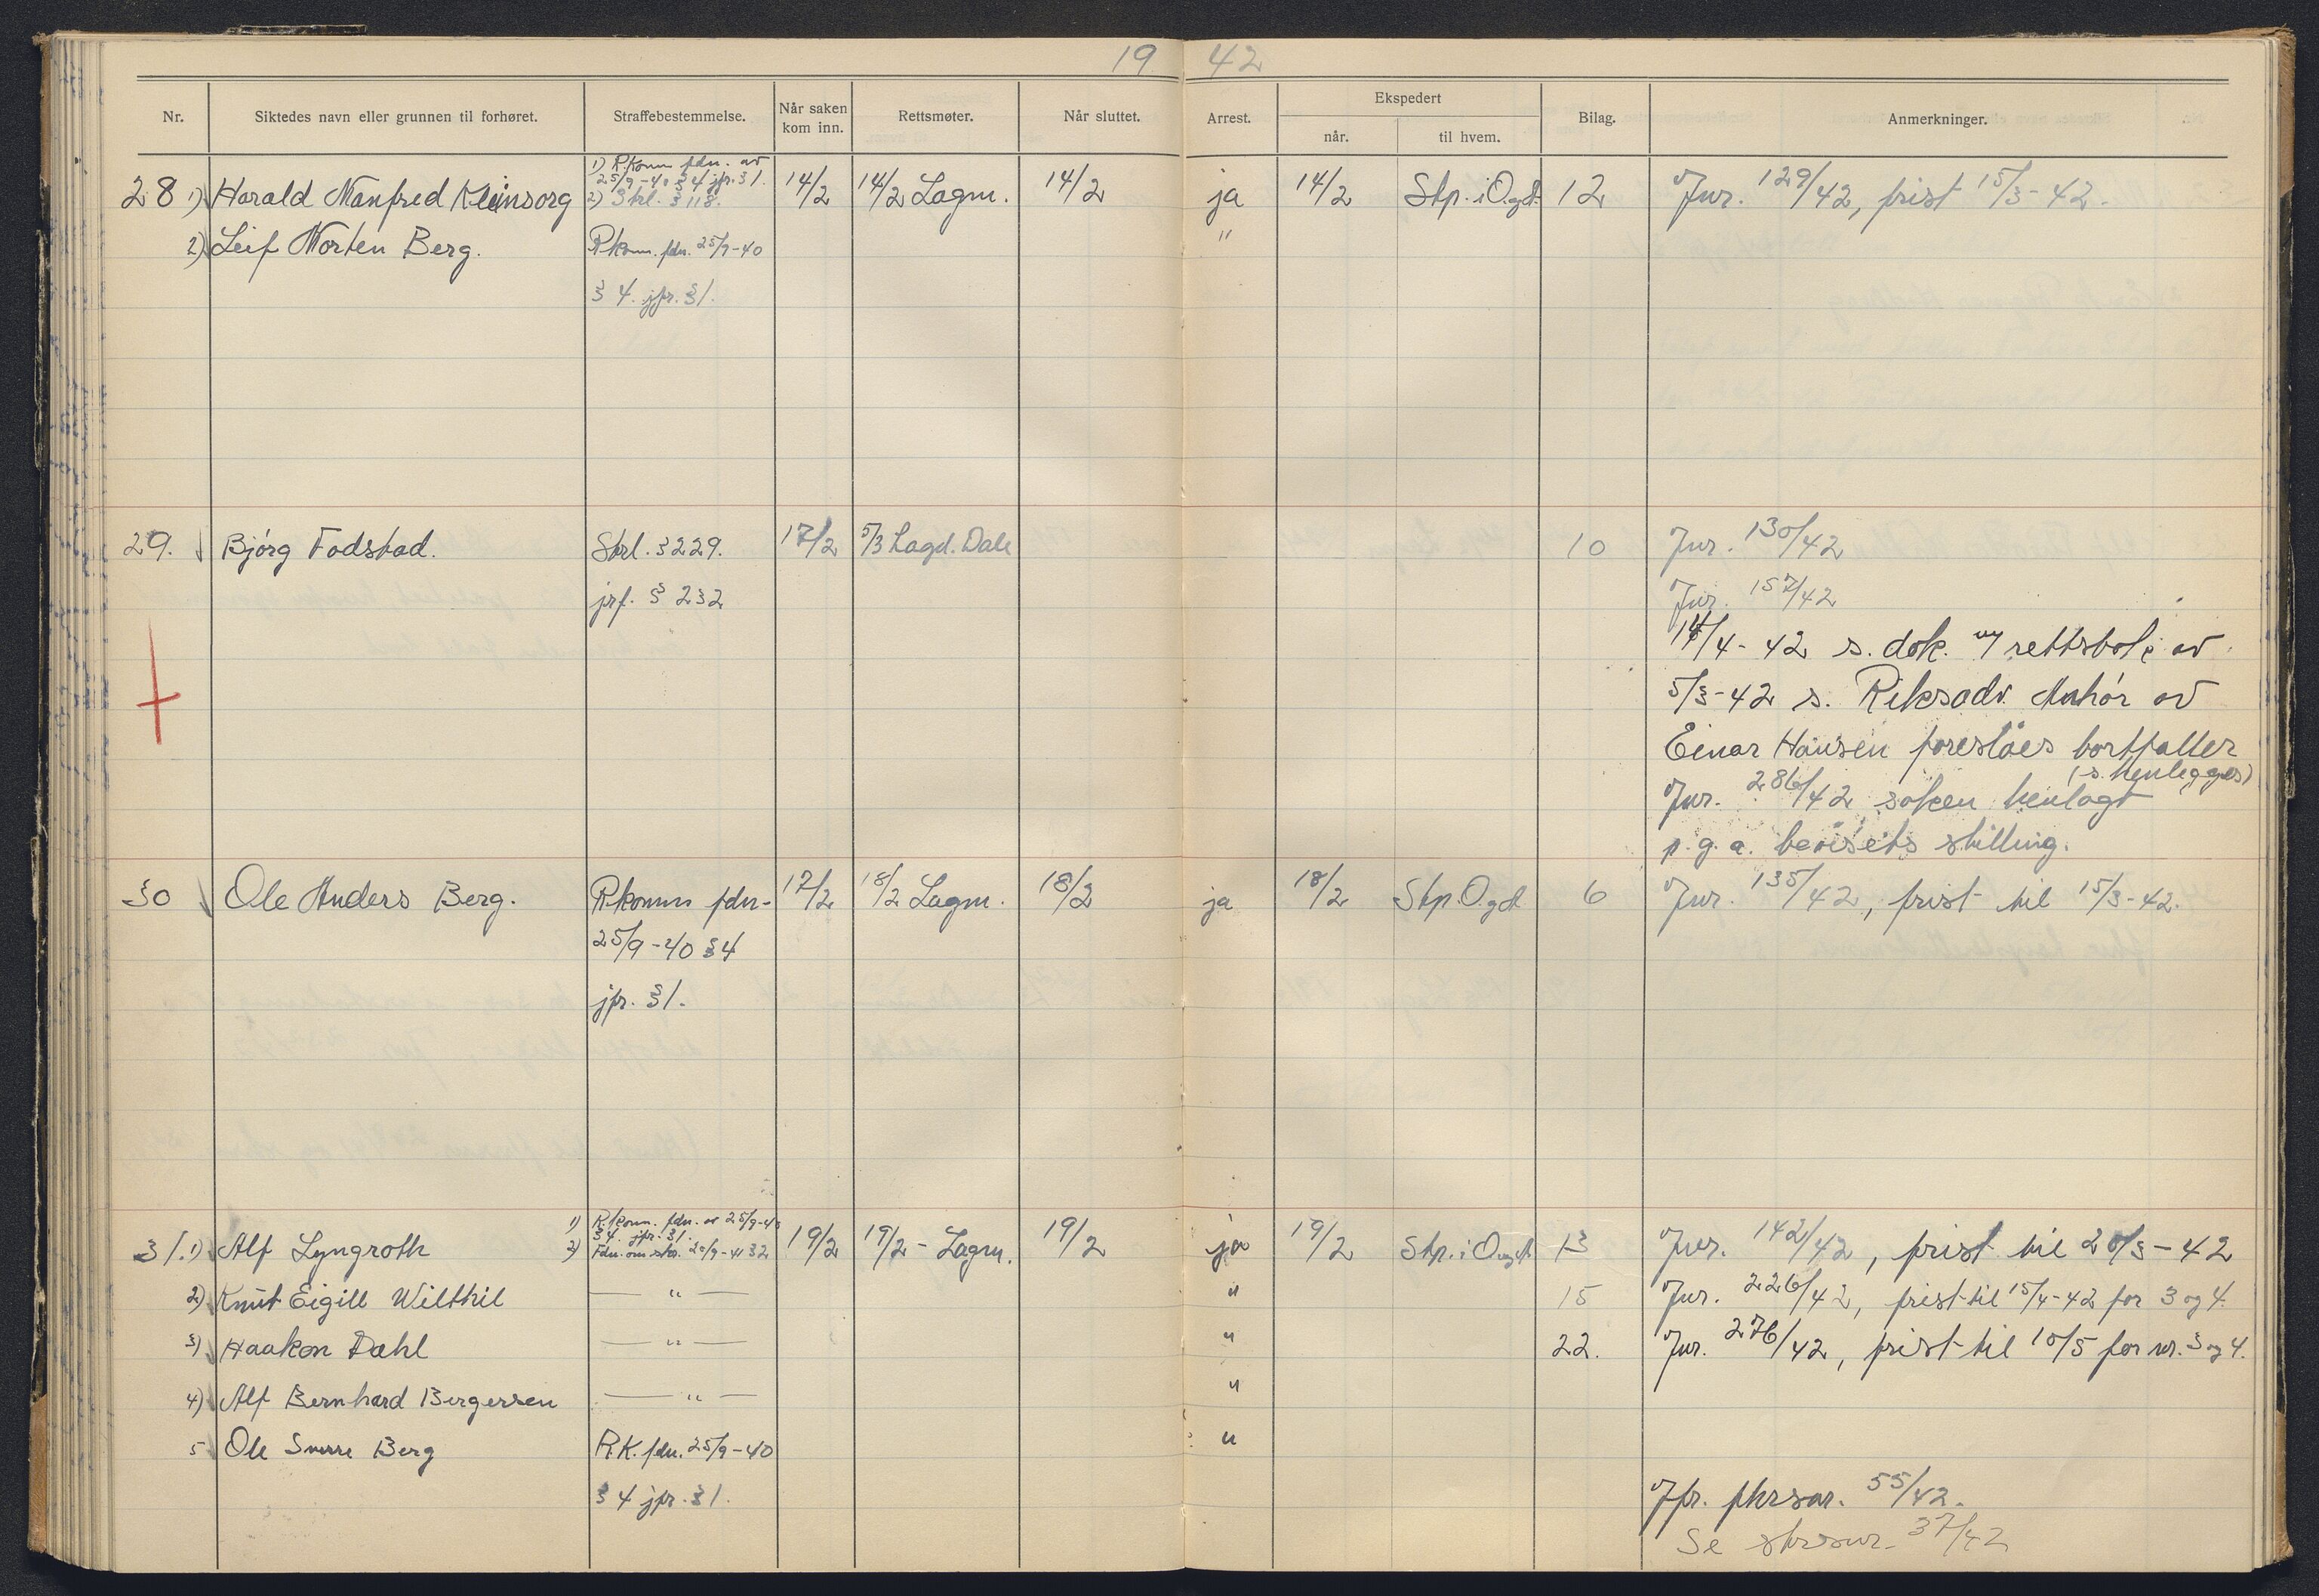 19 42
Nr. Siktedes navn eller grunnen til forhøret. Straffebestemmelse. Når saken kom inn. Rettsmøter. Når sluttet. Arrest. Ekspedert når. til hvem. Bilag. Anmerkninger.
1) R.komm fdn. av
25/9-40 § 4 jfr. § 1.
28 1) Harald Manfred Kleinsorg 2) Strl. § 118. 14/2 14/2 Lagm. 14/2 ja 14/2 Stp. i O.gt. 12 Jnr. 129/42, frist 15/3-42.
2) Leif Morten Berg. Rkom. fdn. 25/9-40 "
§ 4. jfr. § 1.
29. Bjórg Fodstad. Strl. § 229. 17/2 5/3 Lagd. Dale 10 Jnr. 130/42
jrf. § 232 Jnr. 157/42
14/4-42 s. dok. m/ rettsbok av
5/3-42 s. Riksadv. Avhór av
Einar Hansen foreslåes bortfaller
(s. henlegges)
Jnr. 286/42, saken henlagt
p.g.a. bevisets stilling.
30 Ole Anders Berg. Rkomm fdn- 17/2 18/2 Lagm. 18/2 ja 18/2 Stp. O.gt 6 Jnr. 135/42, frist til 15/3-42.
25/9-40 § 4
jfr. § 1.
1) R.kom. fdn. av 25/9-40
§ 4. jfr. § 1.
31. 1) Alf Lyngroth 2) Fdn. om 20/9-41 § 2 19/2 19/2 - Lagm. 19/2 ja 19/2 Stp. i O.gt. 13 Jnr. 142/42, frist til 20/3-42
2) Knut Eigill Wilthil — " — " 15 Jnr. 226/42, frist til 15/4-42 for 3 og 4.
3) Haakon Dahl — " — " 22. Jnr. 276/42, frist til 10/5 for nr. 3 og 4.
4) Alf Bernhard Bergersen — " — "
5 Ole Sverre Berg R.K. fdn. 25/9-40 "
§ 4 jfr. § 1. Jfr. 55/42.
Se 37/42